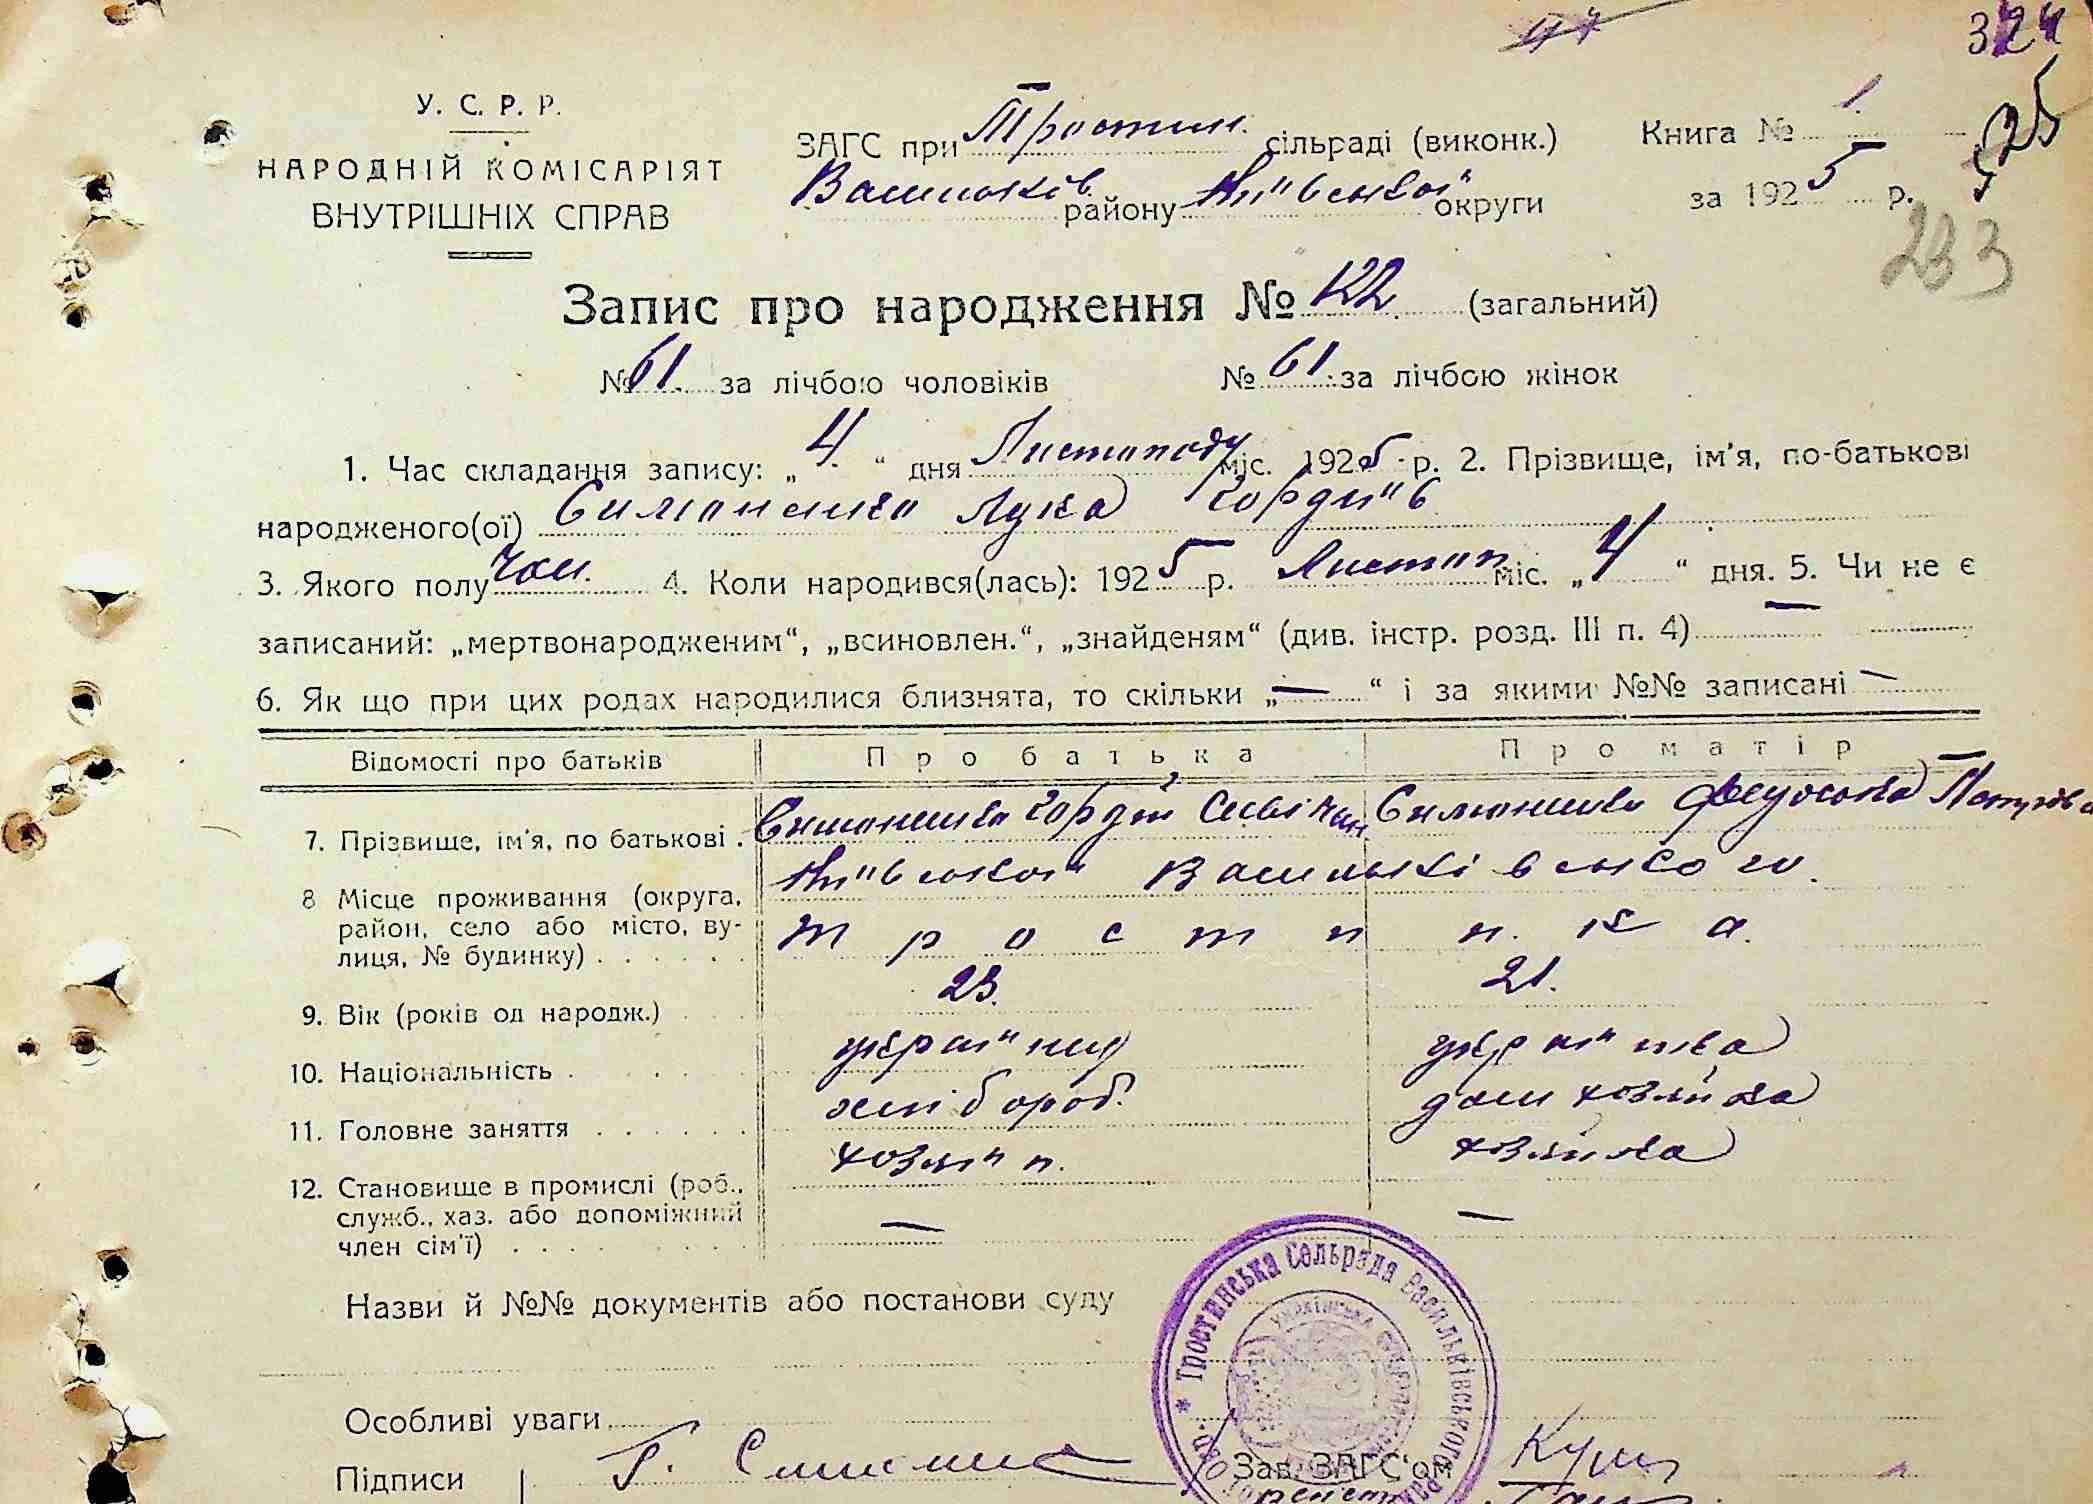 324
525
У. С. Р. Р.
НАРОДНІЙ КОМІСАРІЯТ
ВНУТРІШНІХ СПРАВ
ЗАГС при Тростин. сільраді (виконк.)
Васильків. району Київської округи
Книга № 1.
за 1925 р.
233
Запис про народження № 122 (загальний)
№ 61. за лічбою чоловіків № 61 за лічбою жінок
1. Час складання запису: „4“ дня Листопаду міс. 1925 р. 2. Прізвище, ім'я, по-батькові
народженого(ої) Симоненко Лука Гордіїв
3. Якого полу чол. 4. Коли народився(лась): 1925 р. Листоп міс. „4“ дня. 5. Чи не є
записаний: „мертвонародженим“, „всиновлен.“, „знайденям“ (див. інстр. розд. III п. 4) —
6. Як що при цих родах народилися близнята, то скільки „—“ і за якими №№ записані —
Відомості про батьків Про батька Про матір
7. Прізвище, ім'я, по батькові . Симоненко Гордій Симоненко Феодосія Петрова
8 Місце проживання (округа, район, село або місто, вулиця, № будинку) . . . . . . Київської Васильківського.
Тростинка.
9. Вік (років од народж.) 23. 21.
10. Національність . українец українка
11. Головне заняття . . . . . . хлібороб. дом хозяйка
12. Становище в промислі (роб., служб., хаз. або допоміжний член сім'ї) хозяїн. хозяйка
— —
Назви й №№ документів або постанови суду
Особливі уваги
Підписи Г. Симоненко Зав. ЗАГС'ом
* Тростенська Сельрада Васильківського